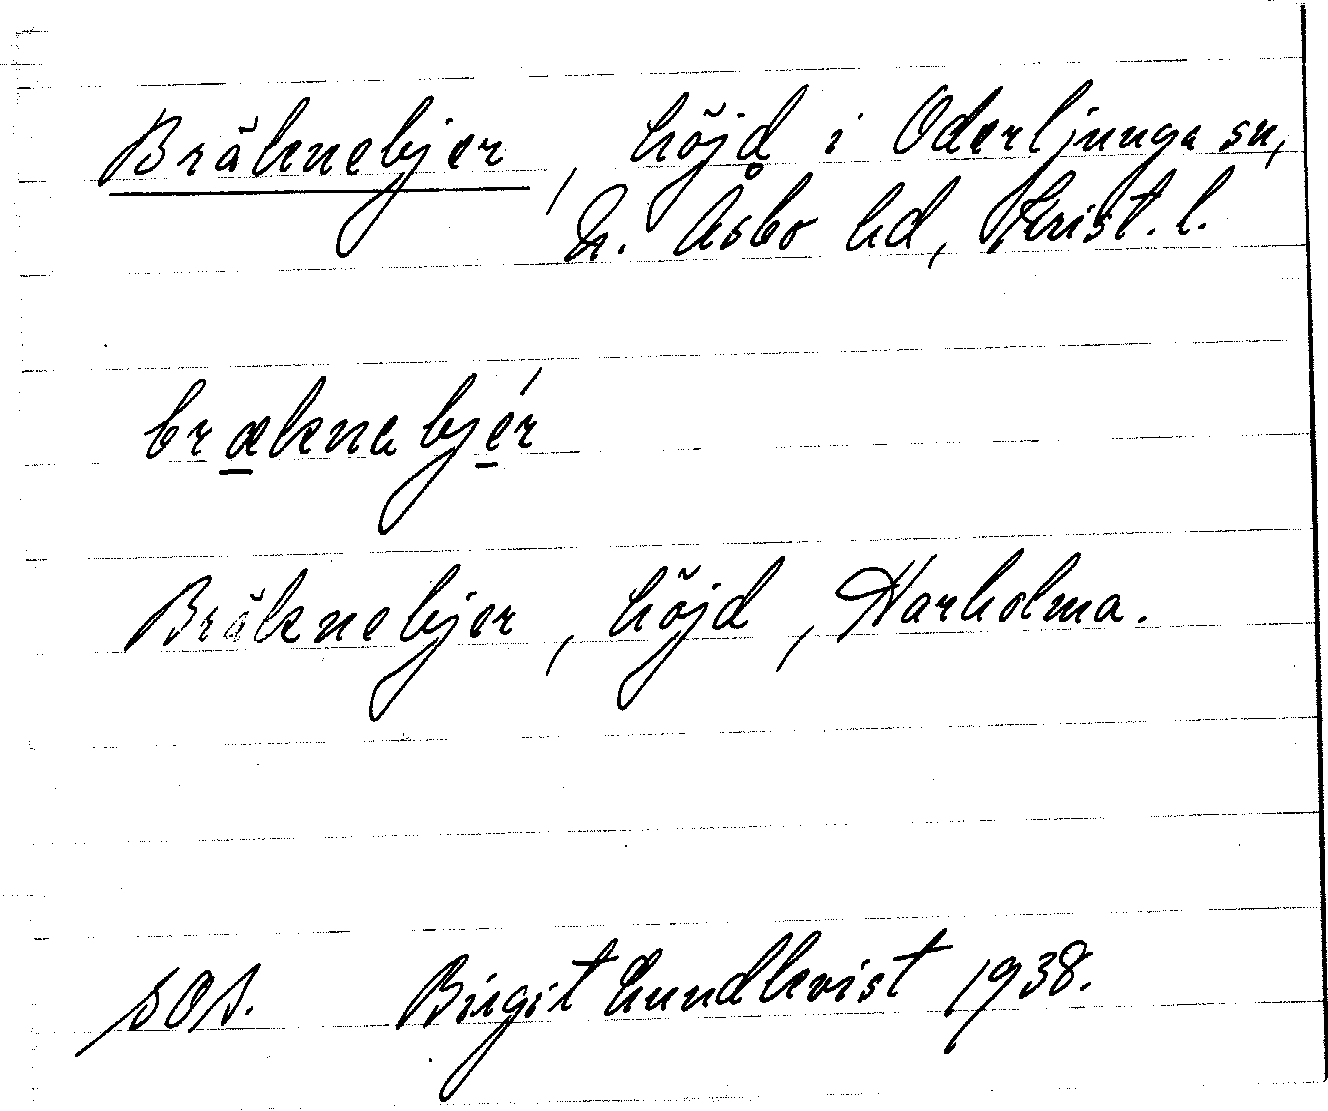 Bräknebjer, höjd i Oderljunga sn,
N. Åsbo hd, Krist. l.
bræknebjér
Bräknebjer, höjd, Harholma.
SOA. Birgit Lundkvist 1938.